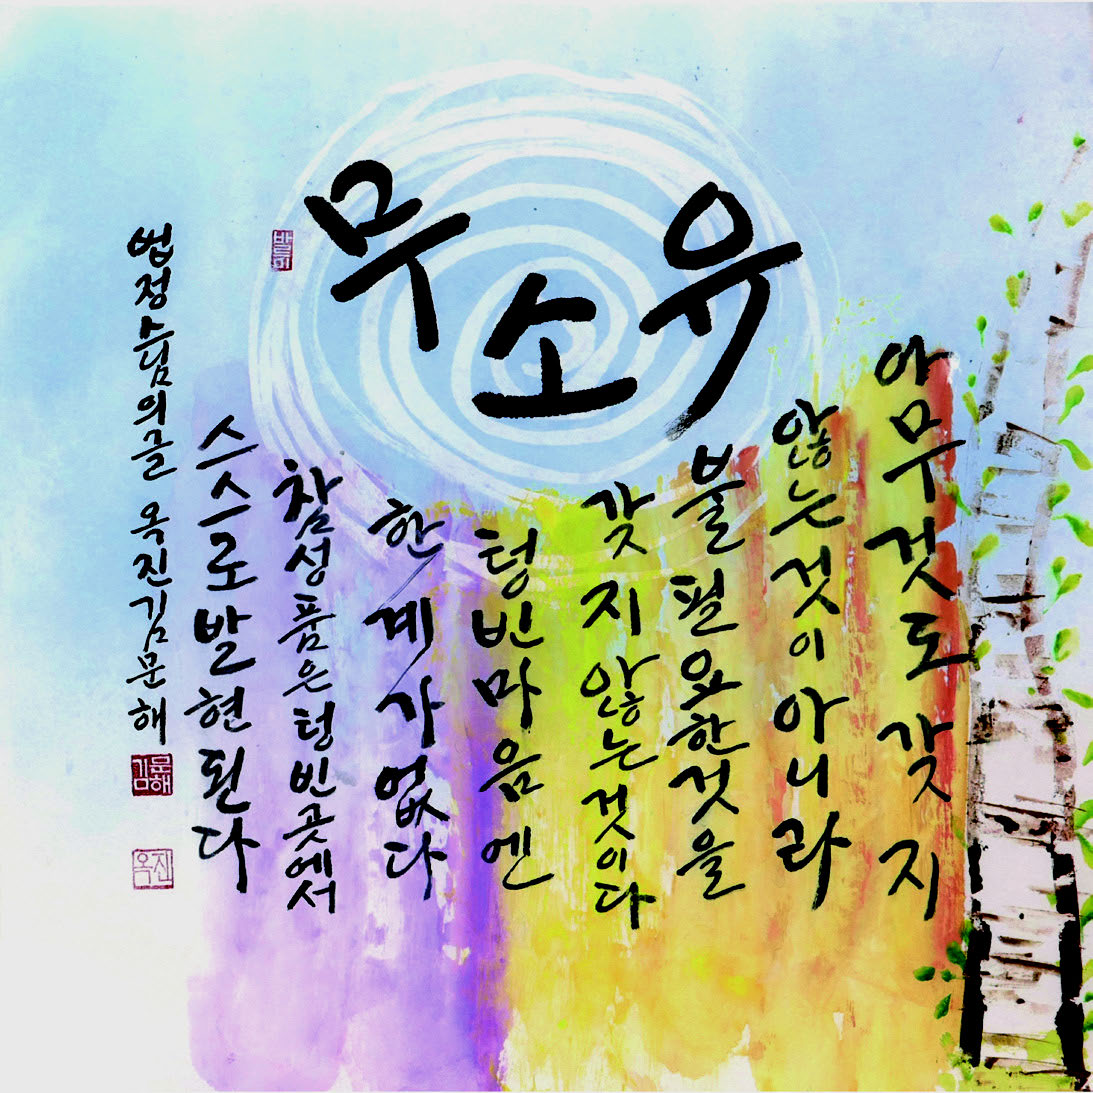 무소유
아무것도 갖지
않는것이 아니라
불필요한것을
갖지 않는것이다
텅빈마음엔
한계가 없다
참성품은 텅빈곳에서
스스로 발현된다
법정스님의글 옥진 김문해
김문해
옥진